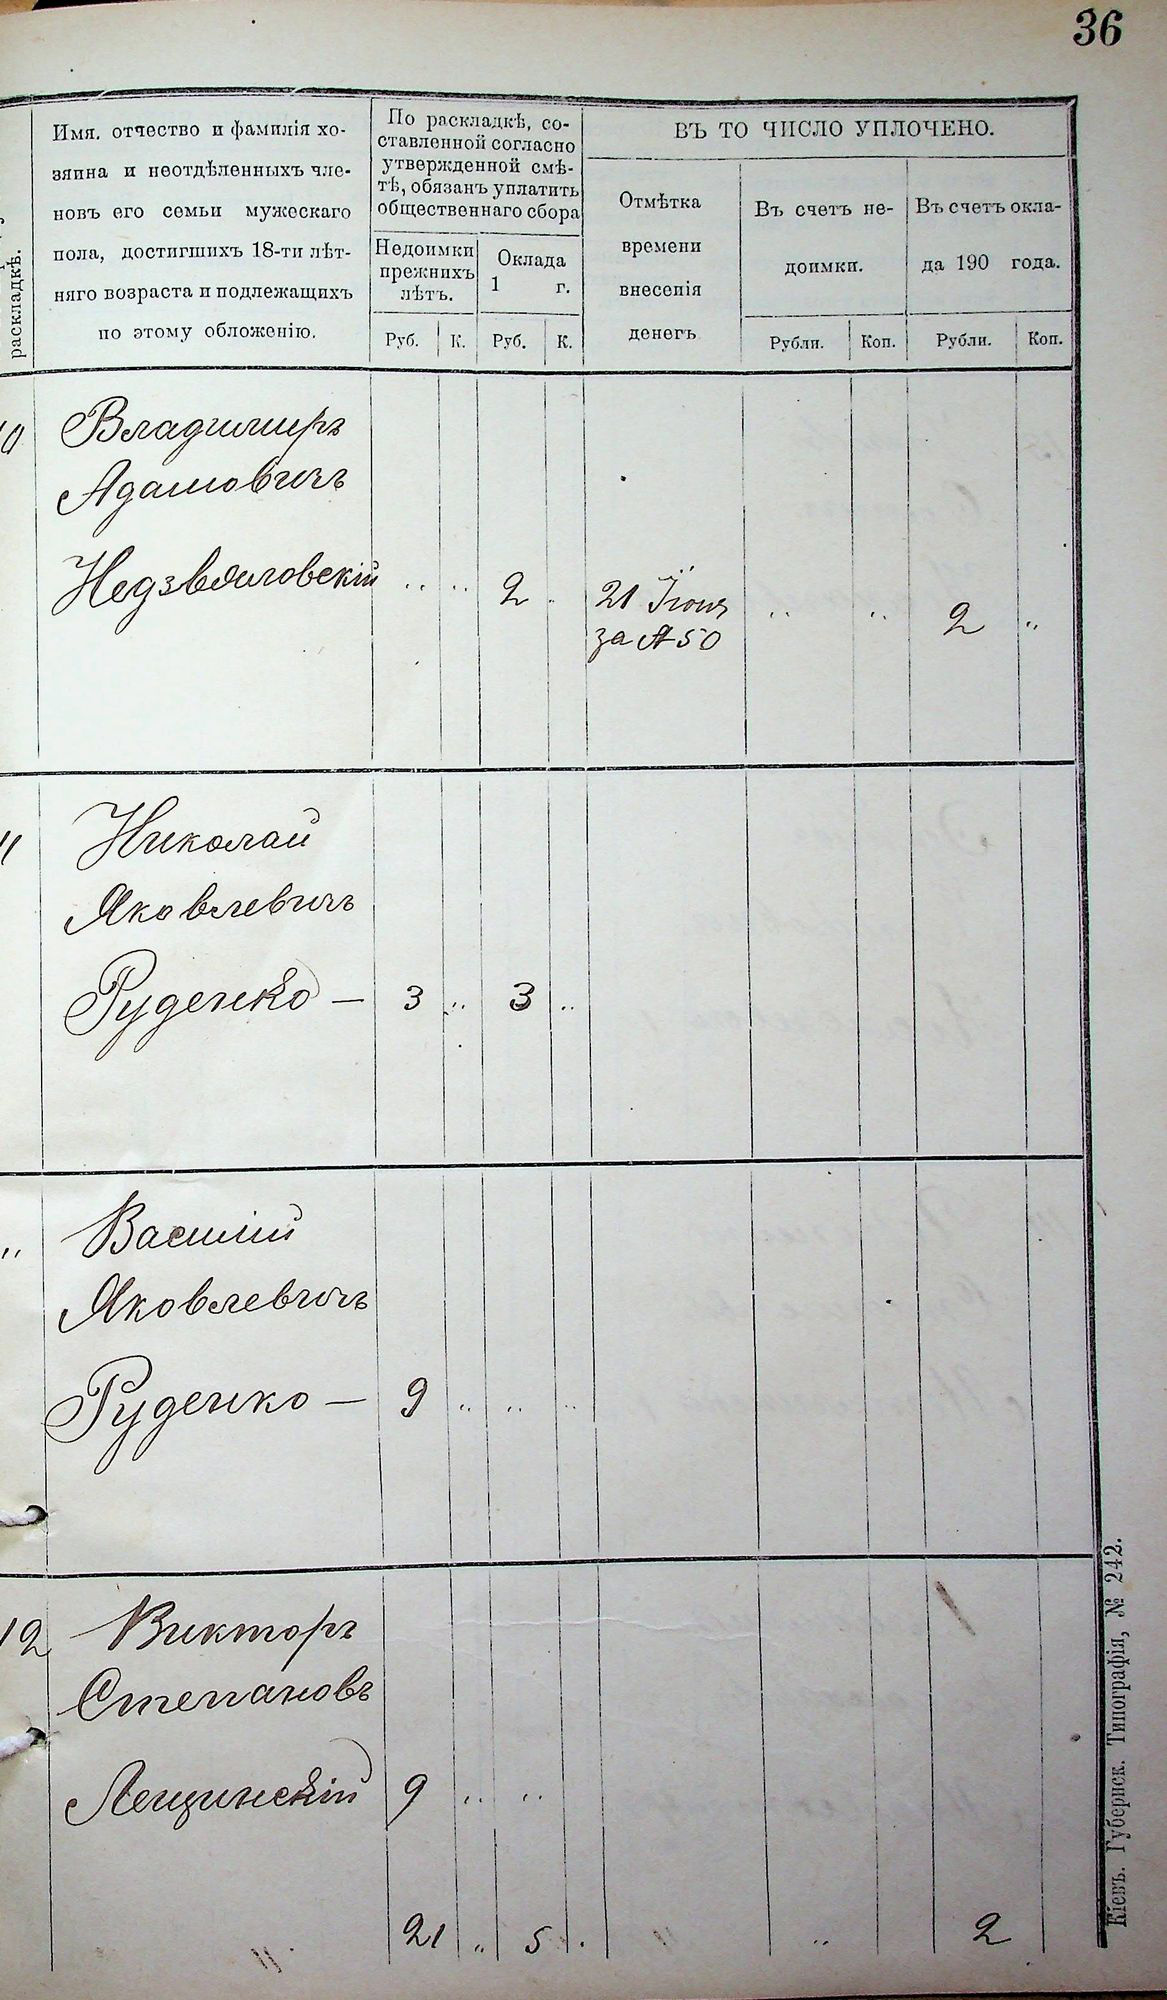 36
раскладкѣ.
Имя, отчество и фамилія хо-
зяина и неотдѣленныхъ чле-
новъ его семьи мужескаго
пола, достигшихъ 18-ти лѣт-
няго возраста и подлежащихъ
по этому обложенію.
По раскладкѣ, со-
ставленной согласно
утвержденной смѣ-
тѣ, обязанъ уплатить
общественнаго сбора
Недоимки
прежнихъ
лѣтъ.
Оклада
1 г.
Руб. К. Руб. К.
ВЪ ТО ЧИСЛО УПЛОЧЕНО.
Отмѣтка
времени
внесенія
денегъ
Въ счетъ не-
доимки.
Въ счетъ окла-
да 190 года.
Рубли. Коп. Рубли. Коп.
10 Владимиръ
Адамовичъ
Недзвяловскій „ „ 2 21 Іюня „ „ 2 „
за № 50
11 Николай
Яковлевичъ
Руденко — 3 „ 3 „
„ Василій
Яковлевичъ
Руденко — 9 „ „ „
12 Викторъ
Степановъ
Лещинскій 9 „ „
21 „ 5 „ 2
Кіевъ. Губернск. Типографія, № 242.